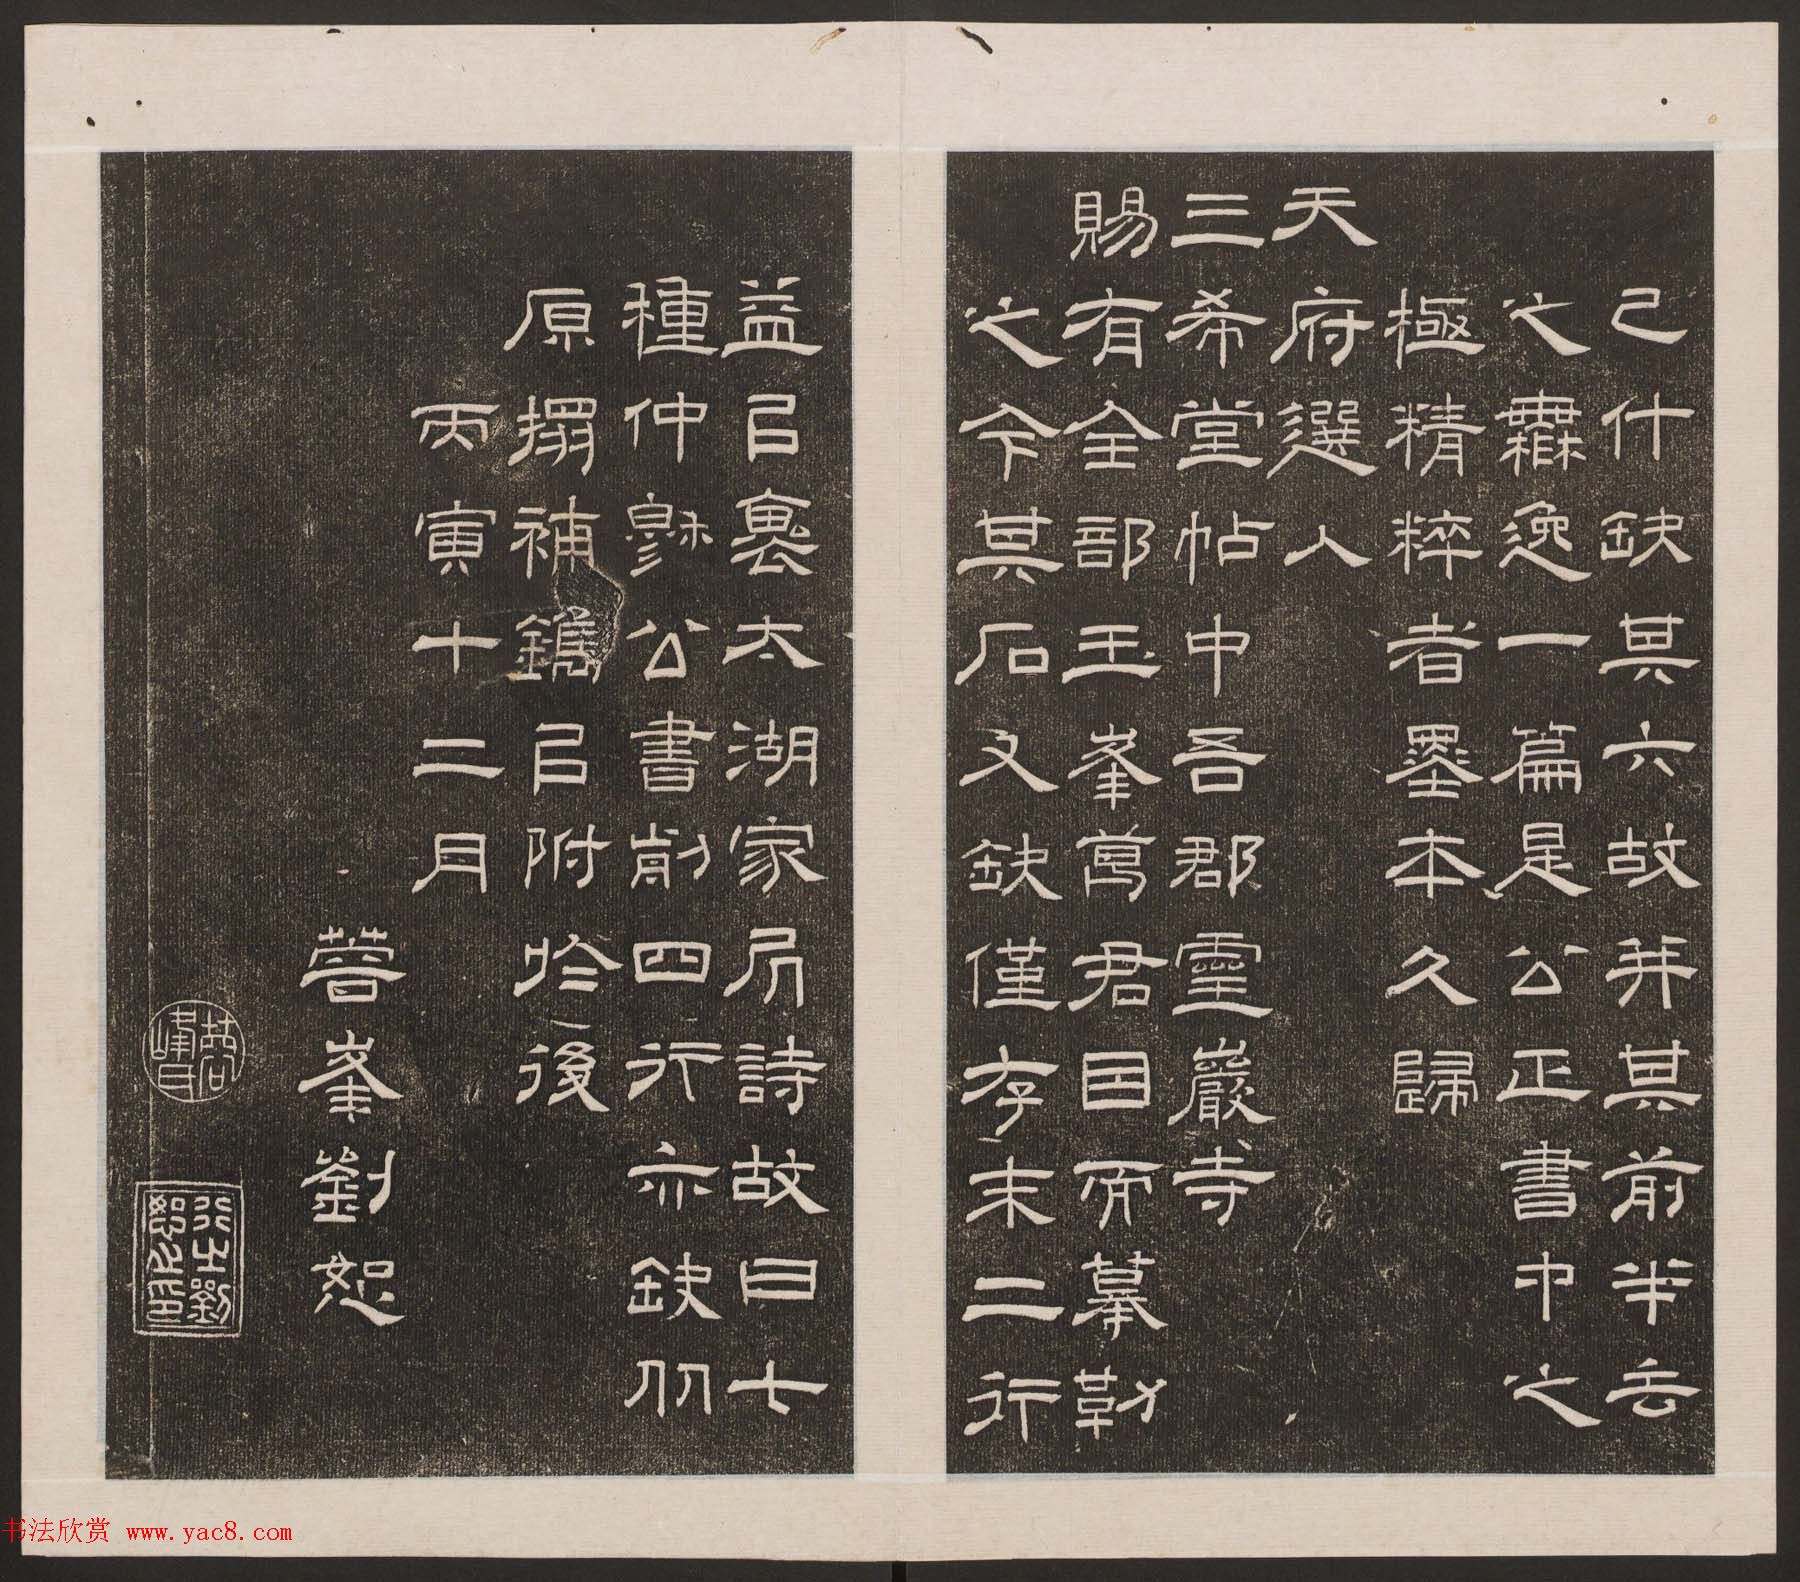 已什缺其六故并其前半云
之無逸一篇是公正書中之
極精粹者墨本久歸
天府選入
三希堂帖中吾郡靈巖寺
賜有全部玉峯萬君因而摹勒
之今其石又缺僅存末二行
益㠯裏太湖家居詩故曰七
種仲穆公書前四行亦缺仍
原搨補鐫㠯附於後
丙寅十二月
蓉峯劉恕
蓉峰氏
书法欣赏 www.yac8.com